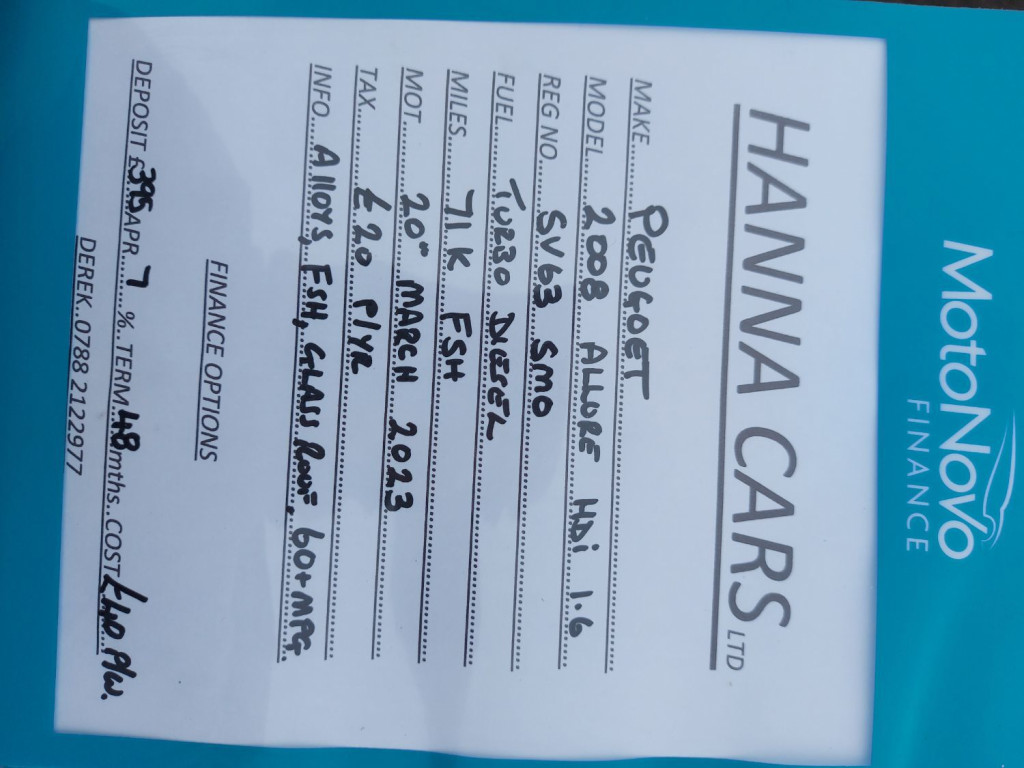 MotoNovo
FINANCE
HANNA CARS LTD
MAKE PEUGOET
MODEL 2008 ALLURE HDi 1.6
REG NO SV63 SMO
FUEL TURBO DIESEL
MILES 71K FSH
MOT 20th MARCH 2023
TAX £20 P/YR
INFO Alloys, FSH, GLASS Roof, 60+MPG
FINANCE OPTIONS
DEPOSIT £395 APR 7 % TERM 48 mths COST £40 P/W.
DEREK 0788 2122977